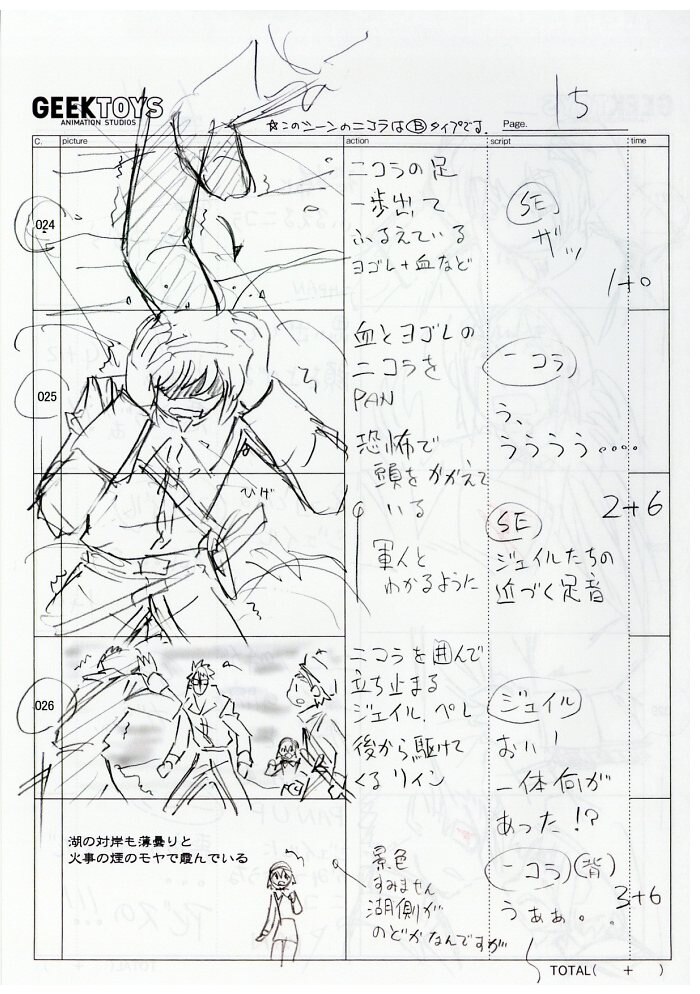 GEEKTOYS
ANIMATION STUDIOS
☆このシーンのニコラはⒷタイプです.
Page. 15
C. picture action script time
024
ニコラの足
一歩出て
ふるえている
ヨゴレ+血など
SE
ザッ
1+0
025
血とヨゴレの
ニコラを
PAN
恐怖で
頭をかかえて
いる
軍人と
わかるように
ひげ
ニコラ
う、
うううう....
2+6
SE
ジェイルたちの
近づく足音
026
ニコラを囲んで
立ち止まる
ジェイル、ペレ
後から駆けて
くるリイン
ジェイル
おい!
一体何が
あった!?
湖の対岸も薄曇りと
火事の煙のモヤで霞んでいる
景色
すみません
湖側が
のどかなんですが
ニコラ(背)
うぁぁ。..
3+6
TOTAL( + )